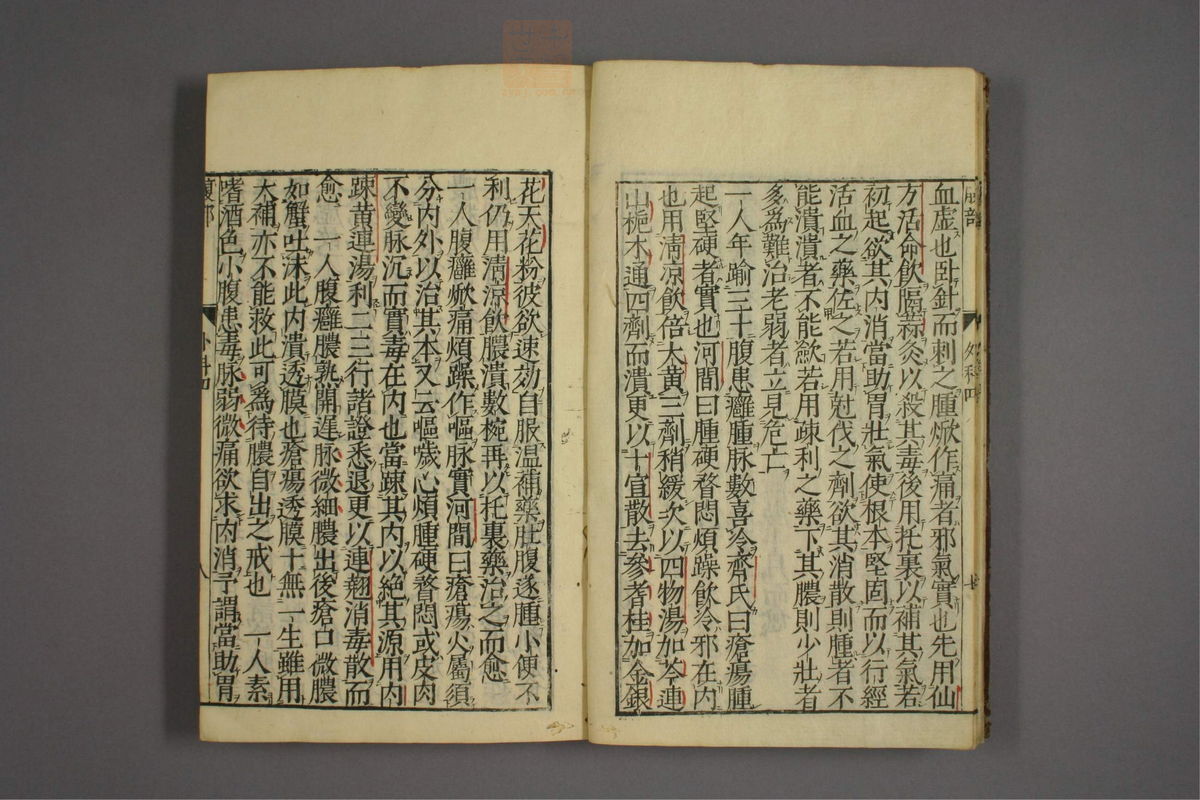 血虛也卧針而刺之腫焮作痛者邪氣實也先用仙
方活命飲隔蒜灸以殺其毒後用托裏以補其氣若
初起欲其内消當助胃壯氣使根本堅固而以行經
活血之藥佐之若用尅伐之劑欲其消散則腫者不
能潰潰者不能歛若用疎利之藥下其膿則少壯者
多為難治老弱者立見危亡
一人年踰三十腹患癰腫脉數喜冷齊氏曰瘡瘍腫
起堅硬者實也河間曰腫硬瞀悶煩躁飲冷邪在内
也用淸凉飲倍大黄三劑稍緩次以四物湯加芩連
山梔木通四劑而潰更以十宣散去參芪桂加金銀
花天花粉彼欲速効自服温補藥肚腹遂腫小便不
利仍用淸凉飲膿潰數椀再以托裏藥治之而愈
一人腹癰焮痛煩躁作嘔脉實河間曰瘡瘍火屬須
分内外以治其本又云嘔噦心煩腫硬瞀悶或皮肉
不變脉沉而實毒在内也當疎其内以絶其源用内
踈黄連湯利二三行諸證悉退更以連翹消毒散而
愈 一人腹癰膿熟開遲脉微細膿出後瘡口微膿
如蟹吐沫此内潰透膜也瘡瘍透膜十無一生雖用
大補亦不能救此可為待膿自出之戒也 一人素
嗜酒色小腹患毒脉弱微痛欲求内消予謂當助胃
腹部
八